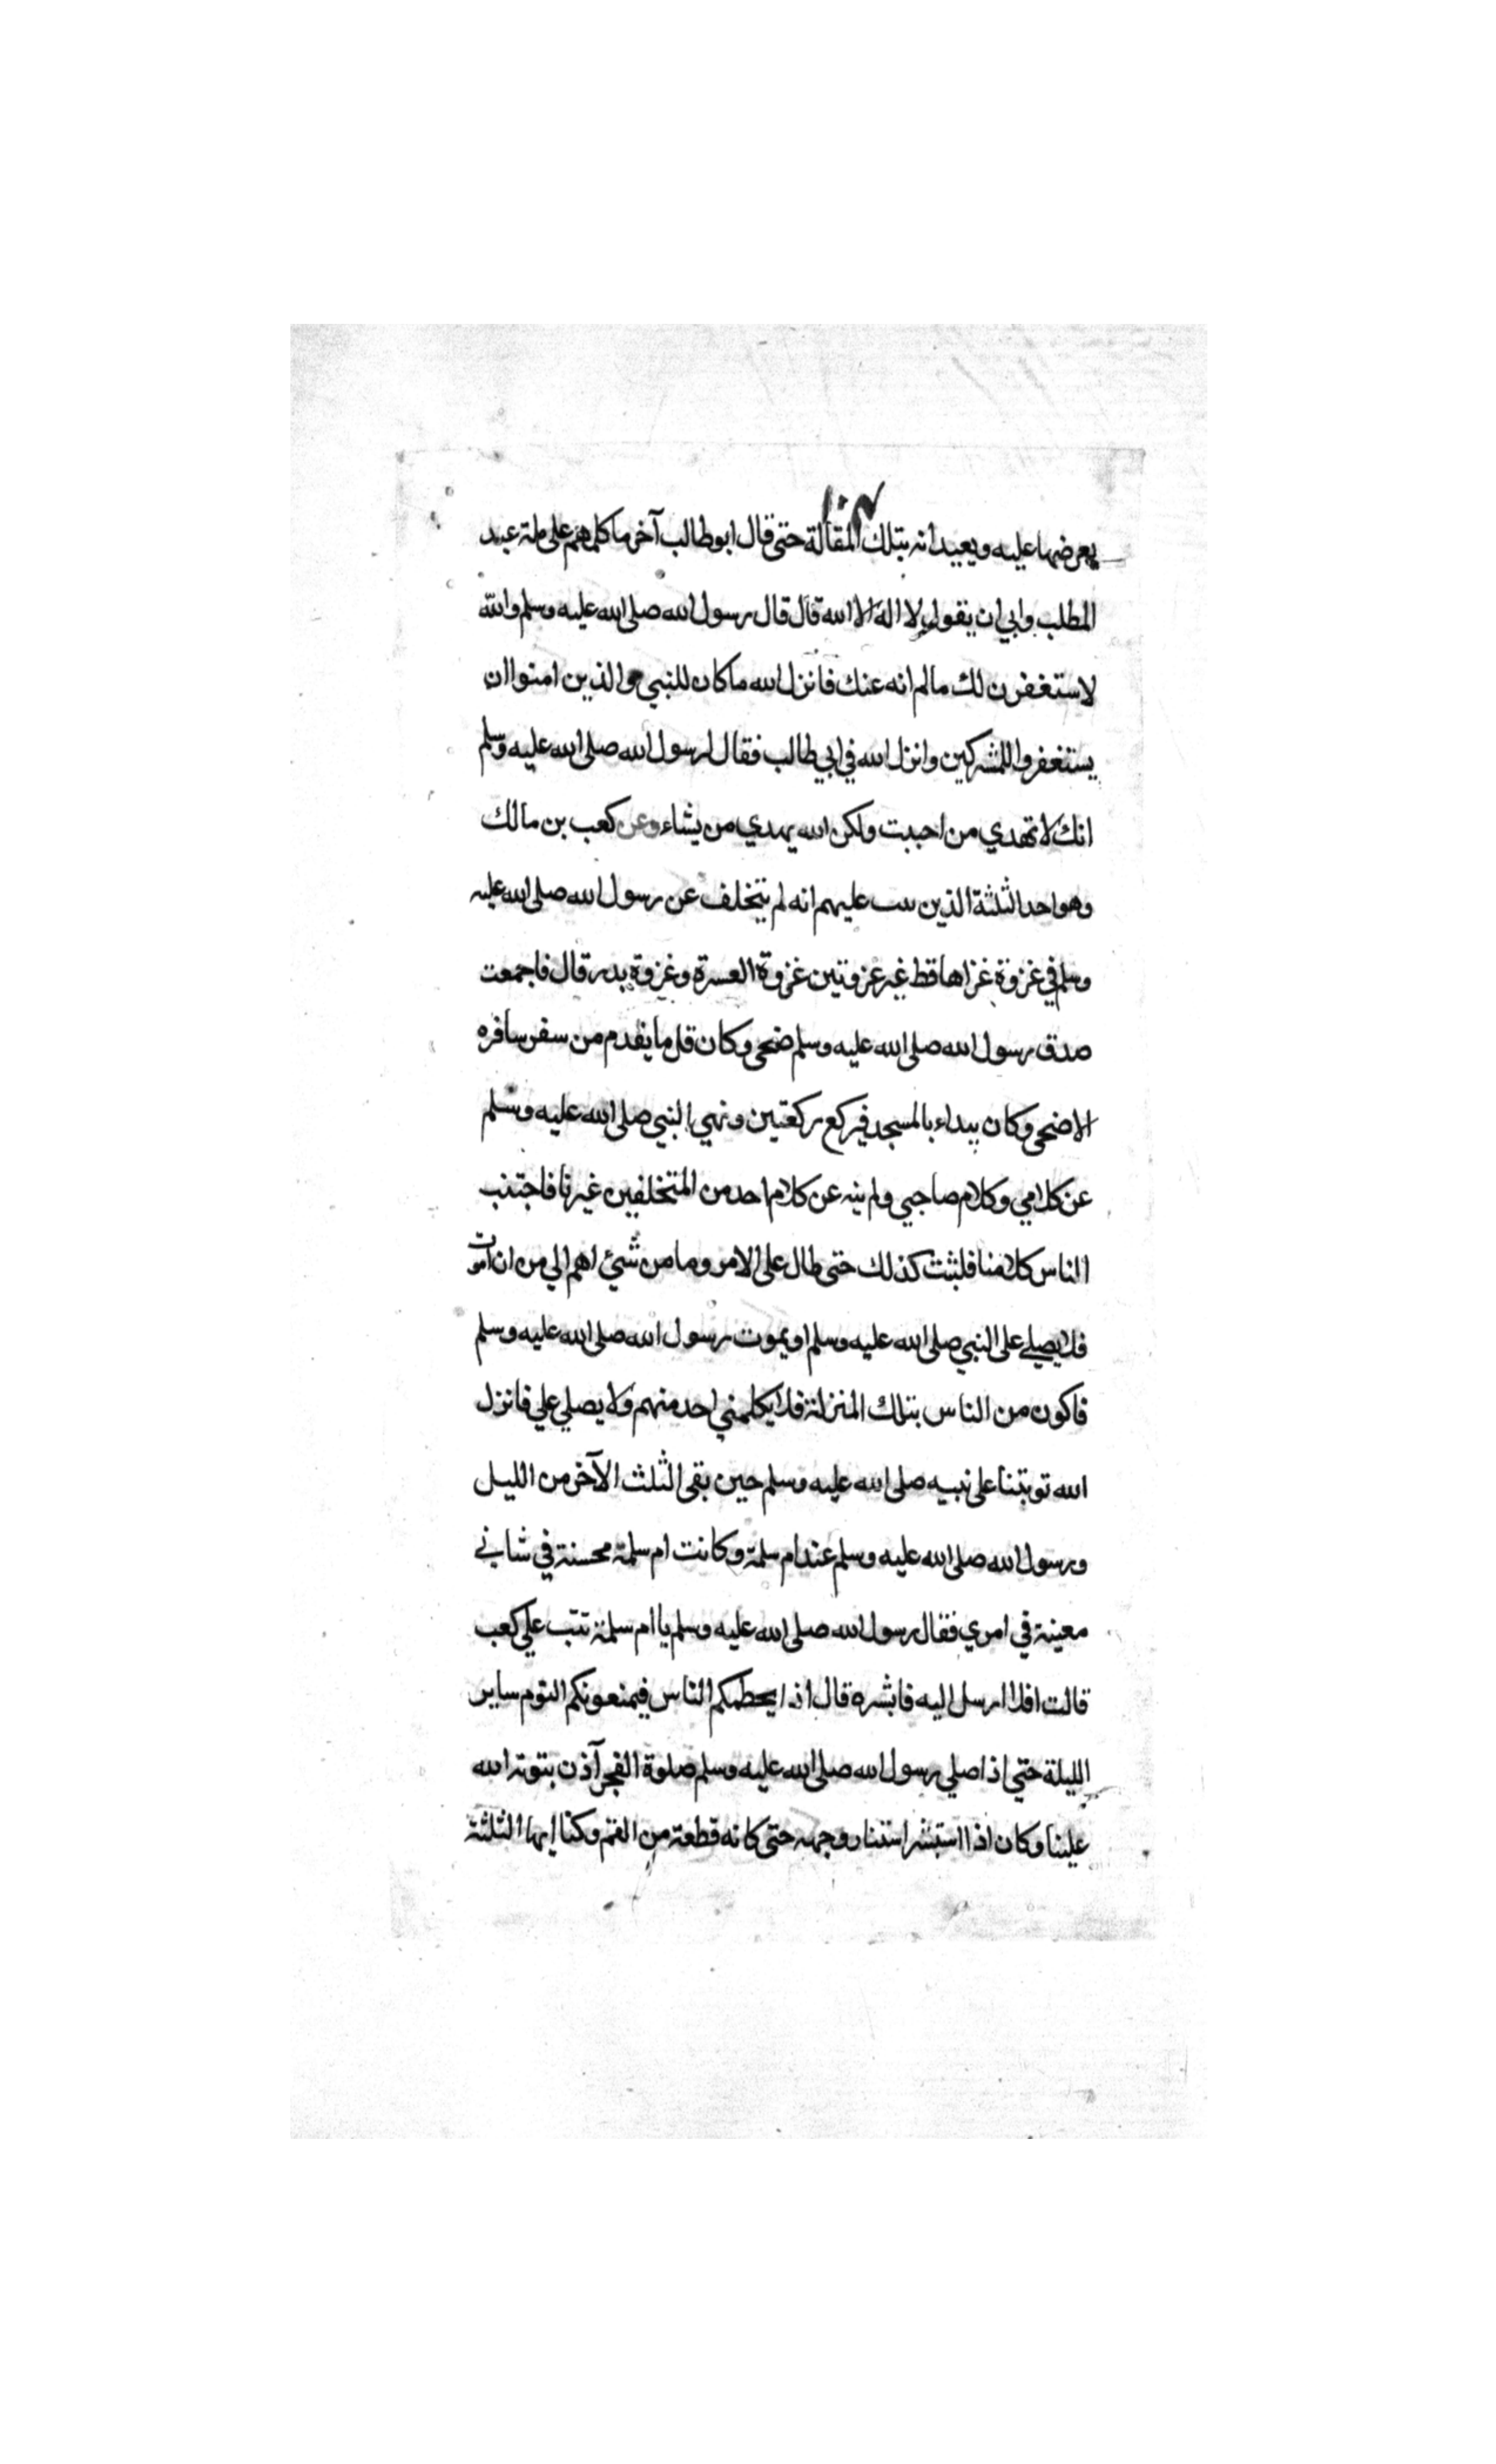 يعرضها عليه ويعيدانه بتلك المقالة حتى قال ابو طالب آخر ما كلمهم على ملة عبد
المطلب وابي ان يقول لا اله الا الله قال قال رسول الله صلى الله عليه وسلم والله
لاستغفرن لك مالم انه عنك فانزل الله ما كان للنبي والذين امنوا ان
يستغفروا للمشركين وانزل الله في ابي طالب فقال لرسول الله صلى الله عليه وسلم
انك لا تهدي من احببت ولكن الله يهدي من يشاء وعن كعب بن مالك
وهو احد الثلثة الذين تيب عليهم انه لم يتخلف عن رسول الله صلى الله عليه
وسلم في غزوة غزاها قط غير غزوتين غزوة العسرة وغزوة بدر قال فاجمعت
صدق رسول الله صلى الله عليه وسلم ضحى وكان قل ما يقدم من سفر سافره
الا ضحى وكان يبداء بالمسجد فيركع ركعتين ونهي النبي صلى الله عليه وسلم
عن كلامي وكلام صاحبي ولم ينه عن كلام احد من المتخلفين غيرنا فاجتنب
الناس كلامنا فلبثت كذلك حتى طال على الامر وما من شيئ اهم الي من ان اموت
فلا يصلي على النبي صلى الله عليه وسلم او يموت رسول الله صلى الله عليه وسلم
فاكون من الناس بتلك المنزلة فلا يكلمني احد منهم ولا يصلي علي فانزل
الله توبتنا على نبيه صلى الله عليه وسلم حين بقى الثلث الآخر من الليل
ورسول الله صلى الله عليه وسلم عند ام سلمة وكانت ام سلمة محسنة في شاني
معينة في امري فقال رسول الله صلى الله عليه وسلم يا ام سلمة تيب علي كعب
قالت افلا ارسل اليه فابشره قال اذا يحطمكم الناس فيمنعونكم النوم ساير
الليلة حتي اذا صلي رسول الله صلى الله عليه وسلم صلوة الفجر آذن بتوبة الله
علينا وكان اذا استبشر استنار وجهه حتى كانه قطعة من القمر وكنا ايها الثلثة